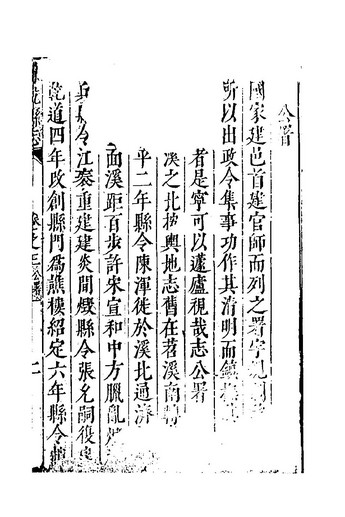 公署
國家建邑首建官師而列之署宇規制
所以出政令集事功作其清明而鎮
者是寧可以蘧廬視哉志公署
溪之北按輿地志舊在苕溪南
平二年縣令陳渾徙於溪北通濟
面溪距百步許宋宣和中方臘亂
縣令江袤重建建炎間燬縣令張允嗣復
乾道四年改創縣門為譙樓紹定六年縣令趙
縣志 卷之三 公署 二